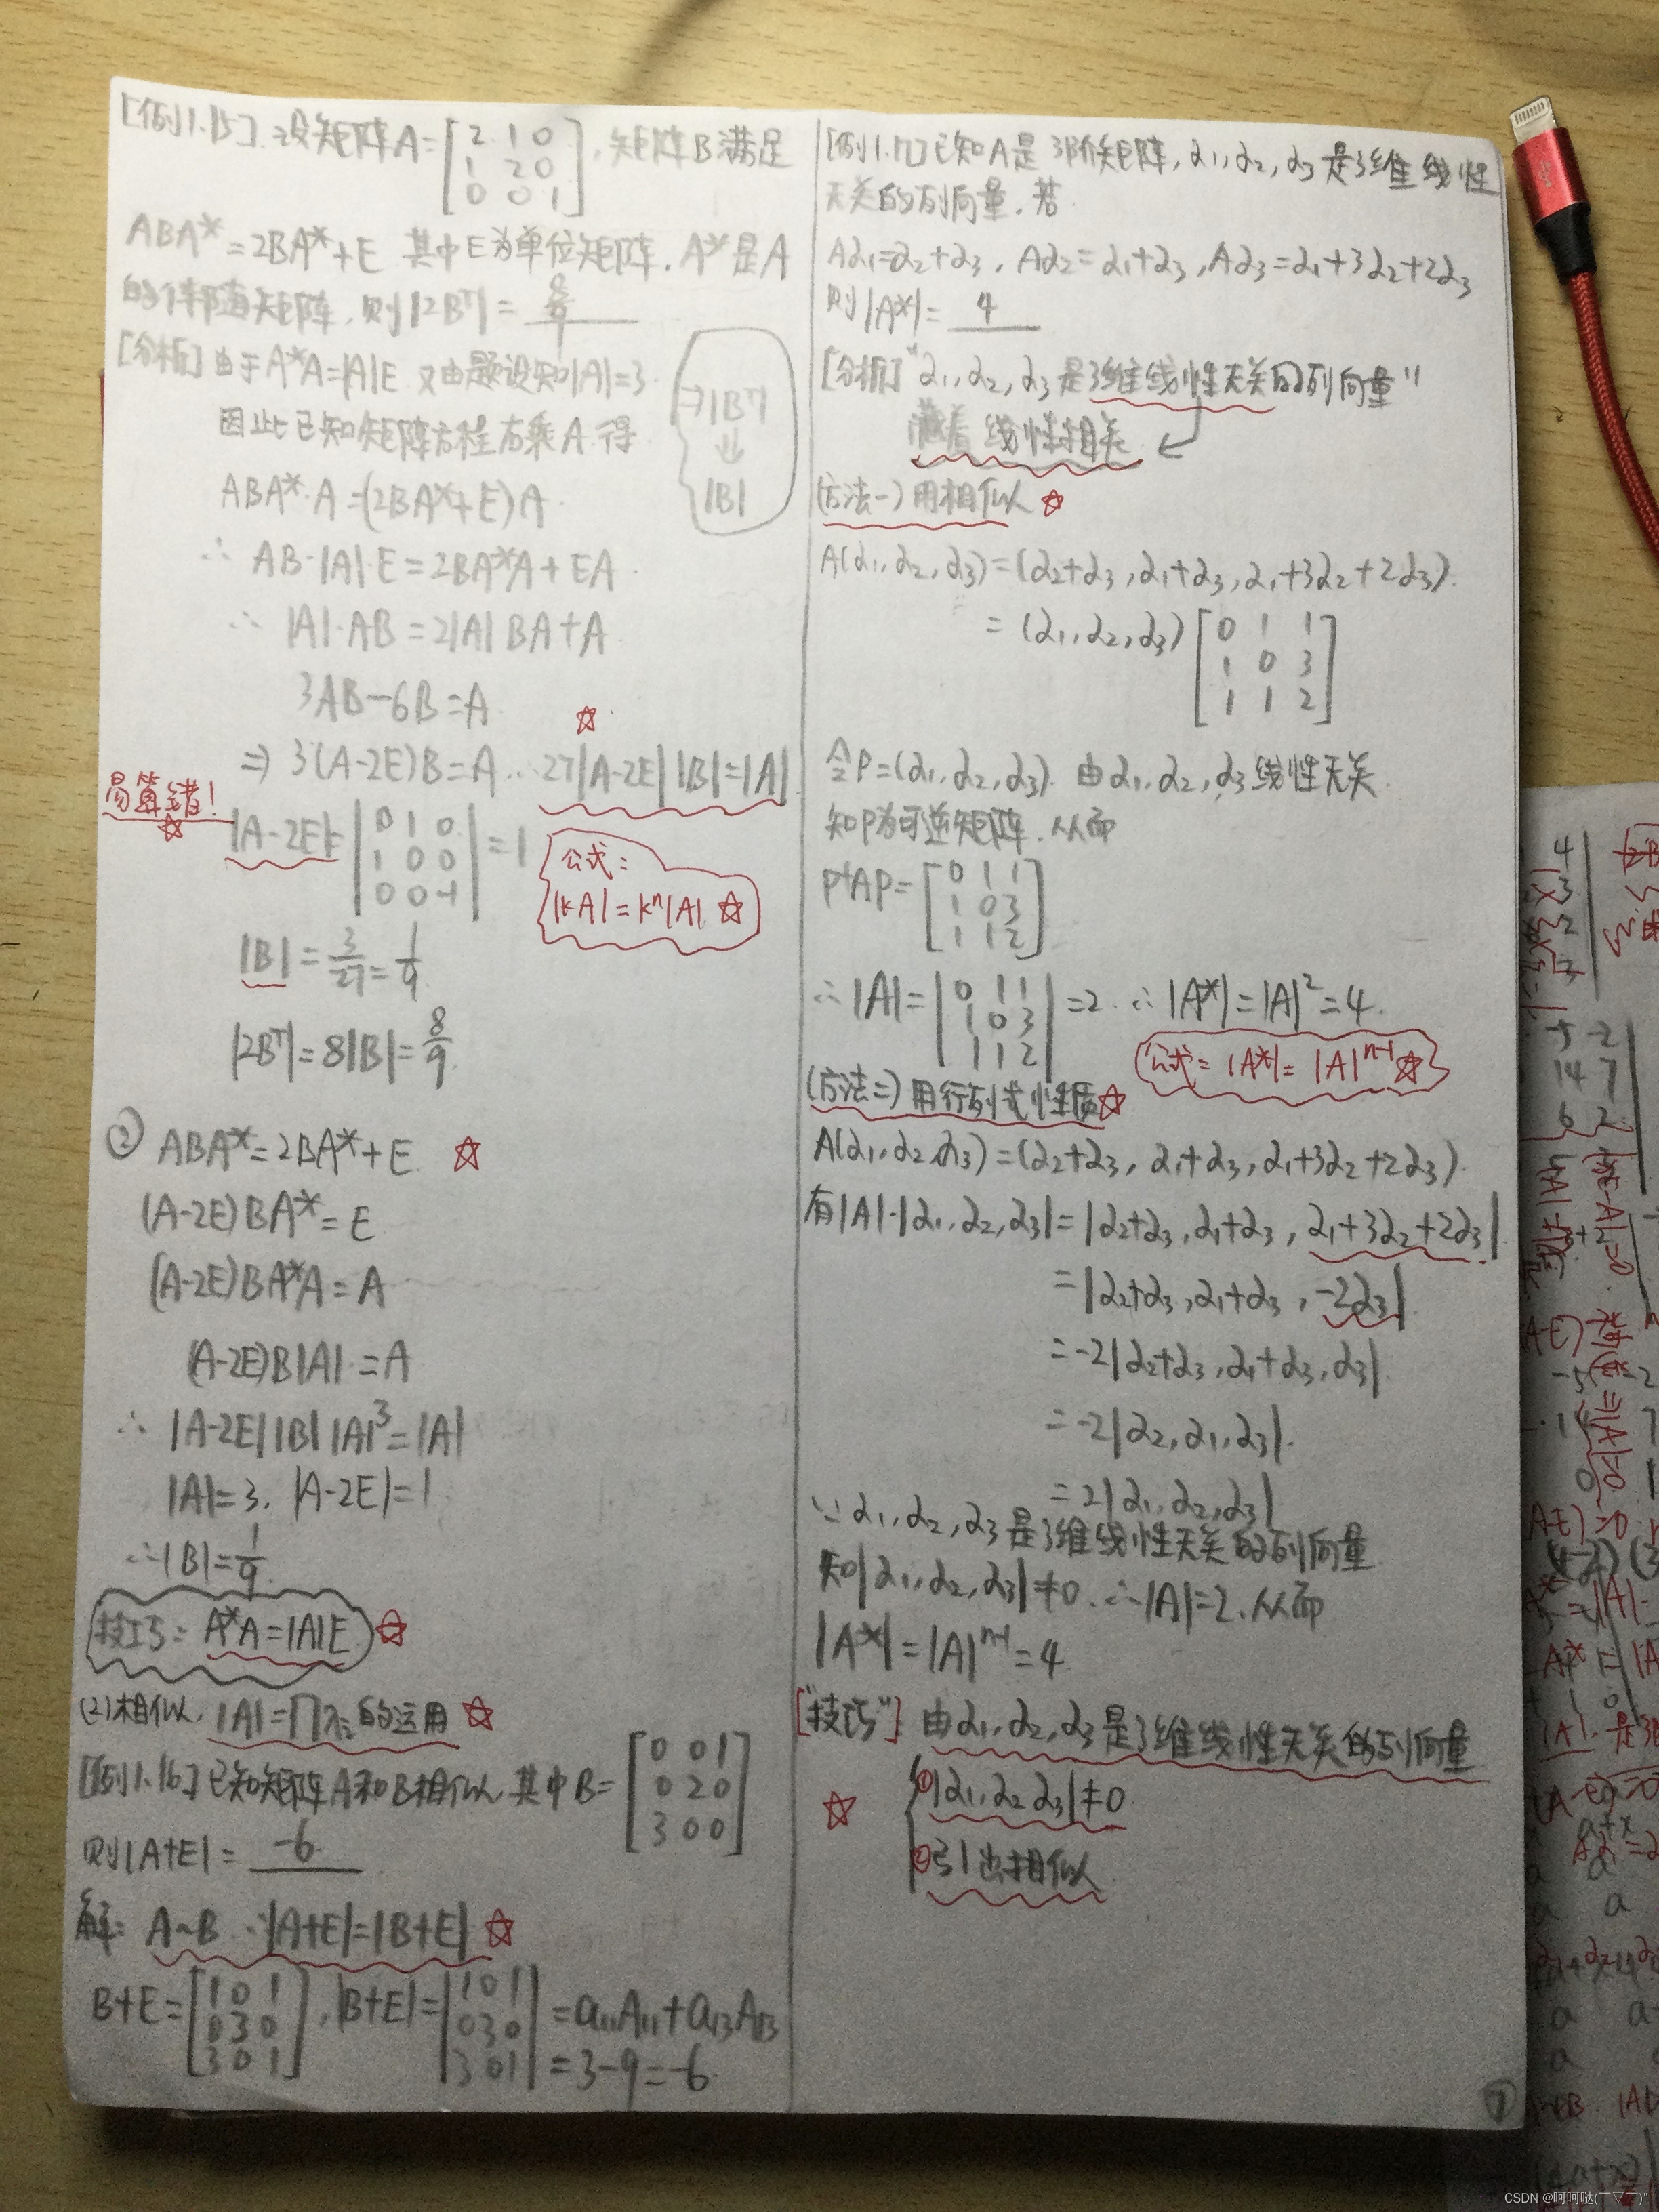 [例1.15].设矩阵A=[2 1 0
1 2 0
0 0 1],矩阵B满足
ABA*=2BA*+E 其中E为单位矩阵,A*是A
的伴随矩阵,则|2Bᵀ|= 8/9
[分析]由于A*A=|A|E 又由题设知|A|=3
因此已知矩阵方程右乘A得
⇒|Bᵀ|
⇓
|B|
ABA*·A=(2BA*+E)A
∴ AB·|A|·E=2BA*A+EA
∴ |A|·AB=2|A|BA+A
3AB-6B=A
⇒ 3(A-2E)B=A ∴27|A-2E||B|=|A|
易算错!
|A-2E|=|0 1 0
1 0 0
0 0 -1|=1
公式:
|kA|=kⁿ|A|
|B|=3/27=1/9
|2Bᵀ|=8|B|=8/9
② ABA*=2BA*+E
(A-2E)BA*=E
(A-2E)BA*A=A
(A-2E)B|A|=A
∴ |A-2E||B||A|³=|A|
|A|=3, |A-2E|=1
∴|B|=1/9
技巧: A*A=|A|E
(2)相似, |A|=∏λᵢ的运用
[例1.16]已知矩阵A和B相似,其中B=[0 0 1
0 2 0
3 0 0]
则|A+E|= -6
解: A~B ∴|A+E|=|B+E|
B+E=[1 0 1
0 3 0
3 0 1], |B+E|=|1 0 1
0 3 0
3 0 1|=a₁₁A₁₁+a₁₃A₁₃
=3-9=-6
[例1.17]已知A是3阶矩阵,α₁,α₂,α₃是3维线性
无关的列向量,若
Aα₁=α₂+α₃, Aα₂=α₁+α₃, Aα₃=α₁+3α₂+2α₃
则|A*|= 4
[分析]"α₁,α₂,α₃是3维线性无关的列向量"
线性相关
(方法一)用相似
A(α₁,α₂,α₃)=(α₂+α₃,α₁+α₃,α₁+3α₂+2α₃).
=(α₁,α₂,α₃)[0 1 1
1 0 3
1 1 2]
令P=(α₁,α₂,α₃). 由α₁,α₂,α₃线性无关
知P为可逆矩阵,从而
P⁻¹AP=[0 1 1
1 0 3
1 1 2]
∴|A|=|0 1 1
1 0 3
1 1 2|=2 ∴|A*|=|A|²=4.
公式: |A*|=|A|ⁿ⁻¹
(方法二)用行列式性质
A(α₁,α₂,α₃)=(α₂+α₃, α₁+α₃,α₁+3α₂+2α₃).
有|A|·|α₁,α₂,α₃|=|α₂+α₃,α₁+α₃,α₁+3α₂+2α₃|
=|α₂+α₃,α₁+α₃,-2α₃|
=-2|α₂+α₃,α₁+α₃,α₃|
=-2|α₂,α₁,α₃|.
=2|α₁,α₂,α₃|
∵α₁,α₂,α₃是3维线性无关的列向量
知|α₁,α₂,α₃|≠0.∴|A|=2,从而
|A*|=|A|ⁿ⁻¹=4
["技巧"] 由α₁,α₂,α₃是3维线性无关的列向量
①|α₁,α₂ α₃|≠0
②引出相似
7
CSDN @呵呵哒(￣▽￣)"